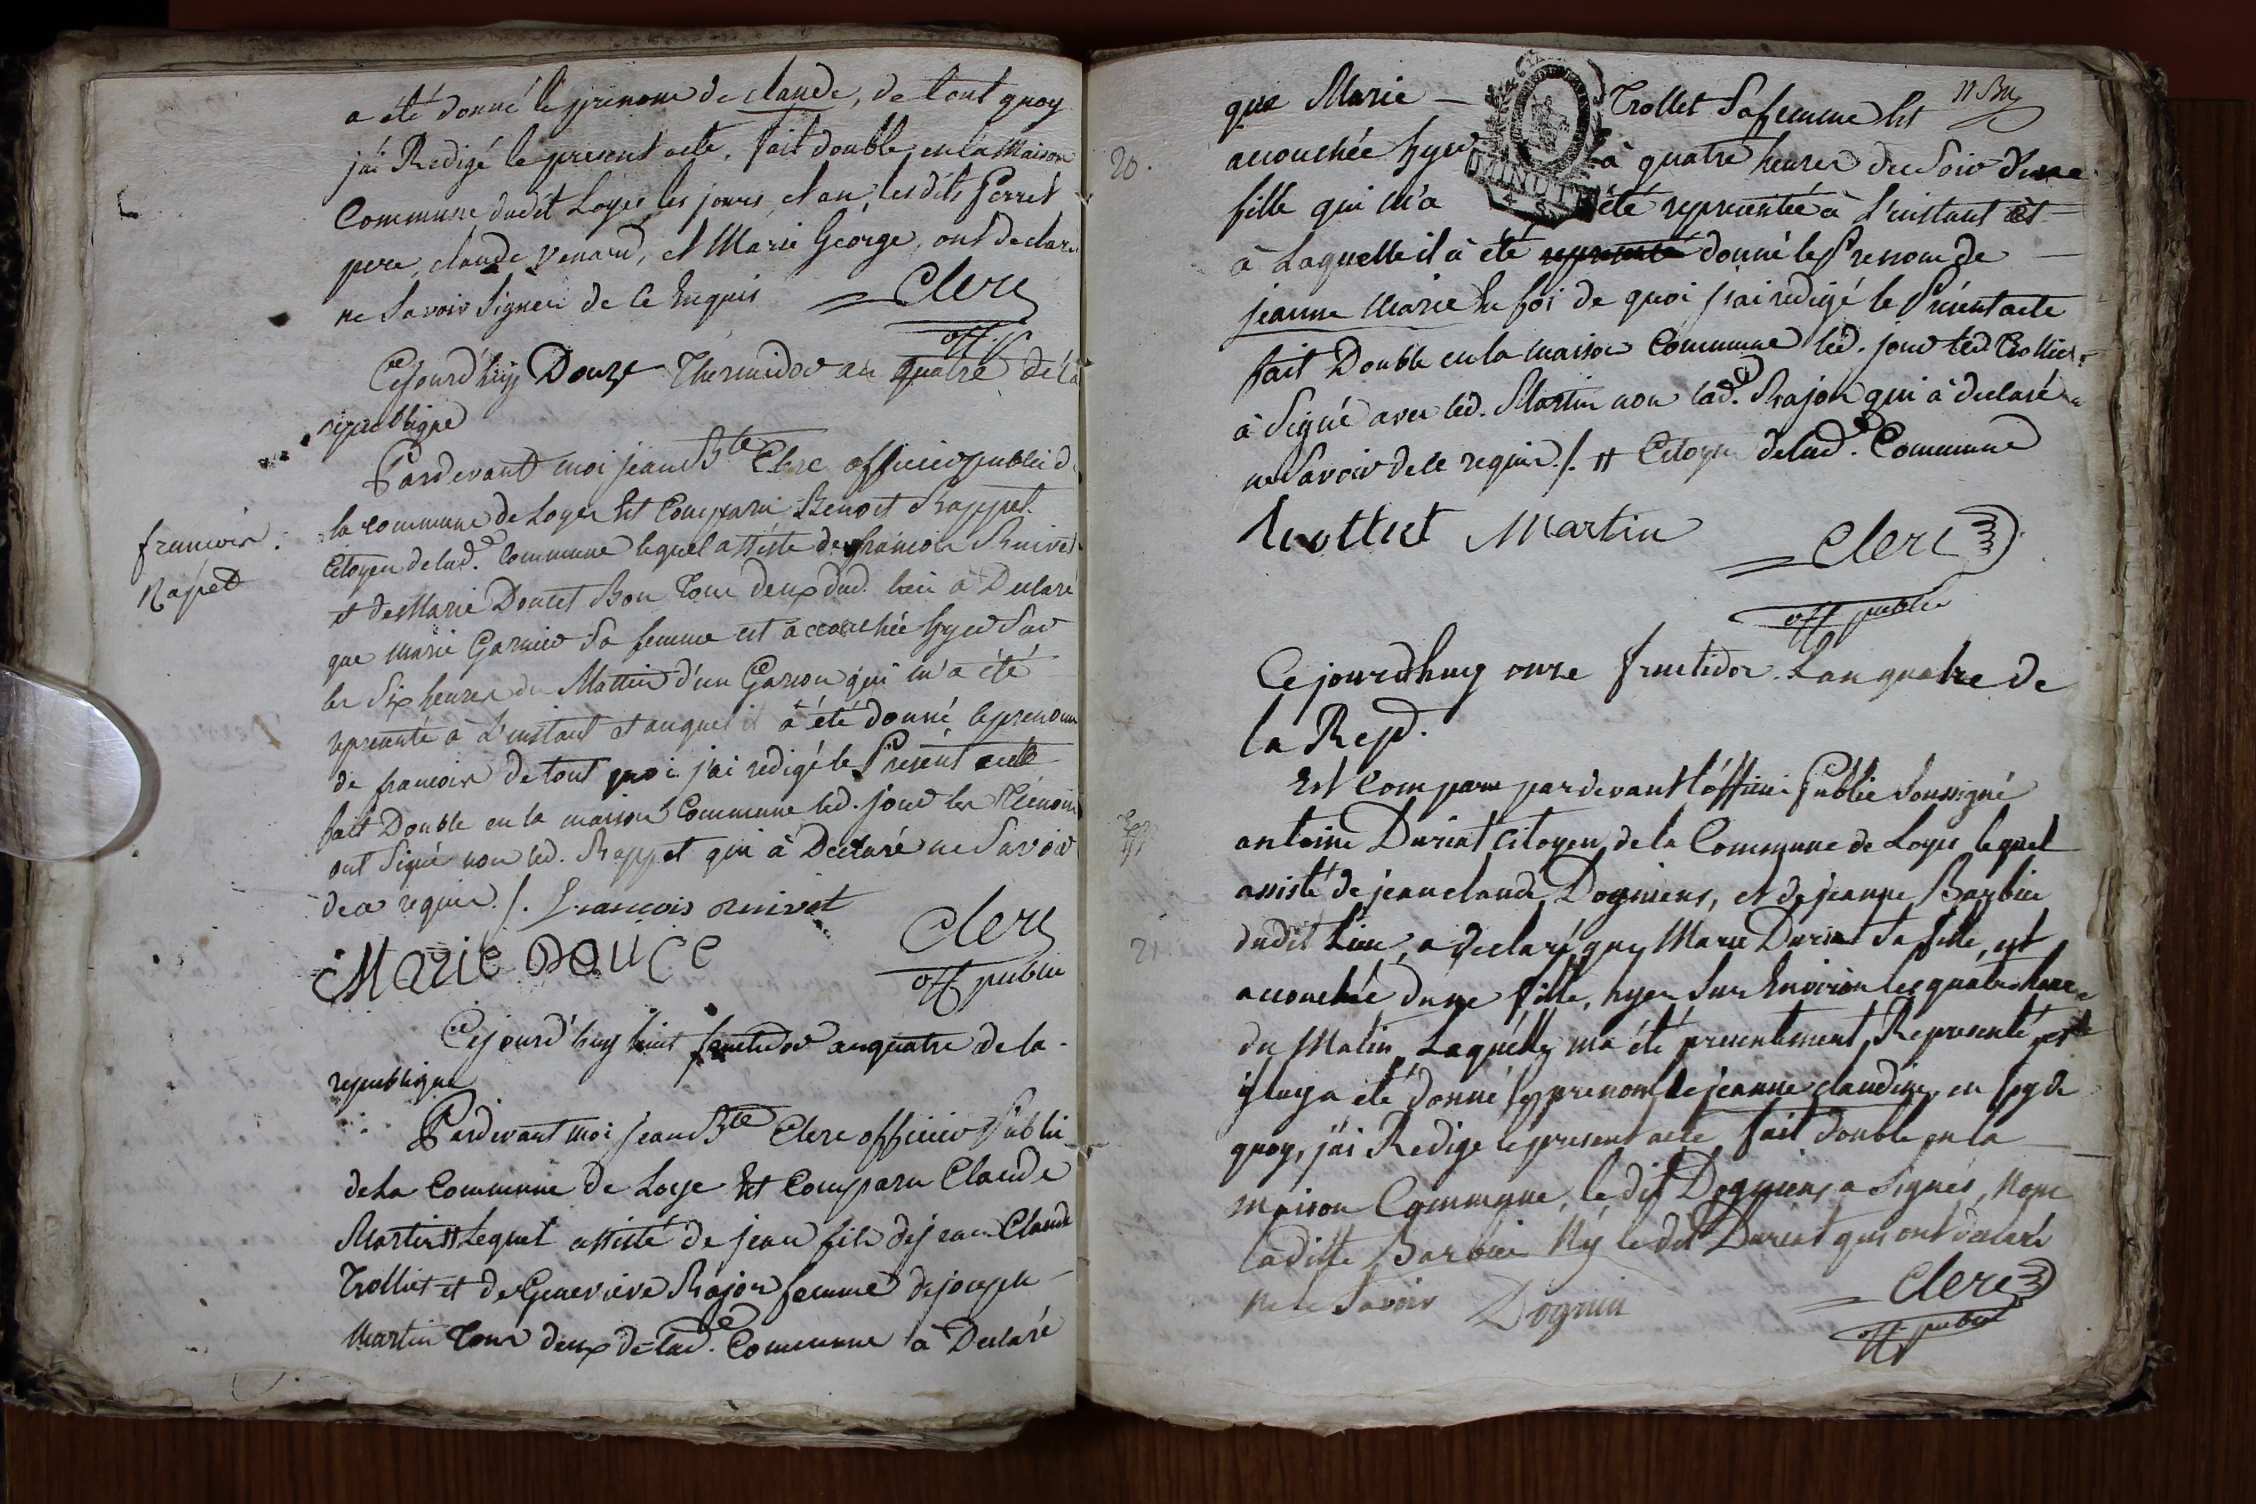 a été donné le prenom de claude, de tout quoy
j'ai Redigé le present acte, fait double en la Maison
Commune dudit Loyes les jours, et an, lesdits Perret
pere, claude Venard, et Marie George, ont declaré
ne Savoir Signer de ce Enquis = Clerc
off. p.
Cejourd'huy Douze Thermidor an quatre de la
republique
Pardevant moi jean Bte Clerc officier public d
la commune de Loyes Est Comparu Benoit Rappet
francois Rapet
Citoyen de lad. Commune lequel assisté de françois Ruivet
et de Marie Doucet Bon Tous deux dud. lieu à Declaré
que marie Garnier Sa femme est accouchée hyer Sur
les Six heures du Mattin d'un Garçon qui m'a été
representé à L'instant et auquel il a été donné le prenom
de francois de tout quoi j'ai redigé le Present acte
fait Double en la maison Commune led. jour les Témoins
ont Signé non led. Rappet qui à Declaré ne Savoir
de ce requis ./. François Ruivet
Clerc
Marie Douce
off public
Cejourd'huy huit fructidor an quatre de la
republique
Pardevant moi jean Bte Clerc officier Public
de La Commune de Loye Est Comparu Claude
Martin # Lequel assisté de jean fils de jean Claude
Trolliet et de Genevieve Rajon femme de joseph
Martin Tous deux de lad. Commune à Declaré
que Marie — Trollet Sa femme Est
20.
accouchée hyer à quatre heures du Soir d'une
fille qui m'a été representée à L'instant et
à Laquelle il à été representé donné le Prenom de
jeanne Marie En foi de quoi j'ai redigé le Présent acte
fait Double en la maison Commune led. jour led. Trolliet
à Signé avec led. Martin non lad. Rajon qui à declaré
ne Savoir de ce requis ./. # Citoyen de lad. Commune
trolliet Martin
= Clerc
off public
Cejourdhuy onze fructidor Lan quatre de
la Rep.
Est Comparu pardevant l'officier Public Soussigné
antoine Duriat Citoyen de la Commune de Loyes lequel
assisté de jean claude Dogniens, et de jeanne Barbier
21.
dudit Lieu, a declaré que Marie Duriat Sa fille, est
accouchée d'une fille, hyer Sur Environ les quatre heures
du Matin, Laquelle m'a été presentement Representé, et
il luy a été donné le prenom de jeanne claudine, en foy de
quoy, j'ai Redigé le present acte, fait double en la
maison Commune, le dit Dogniens a Signés, Non
laditte Barbier Ny le dit Duriat qui ont declaré
ne le Savoir Dognin
= Clerc
off public